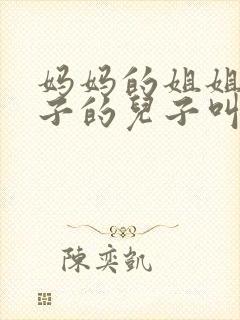 妈妈的姐姐
子的兒子叫
陳奕凱